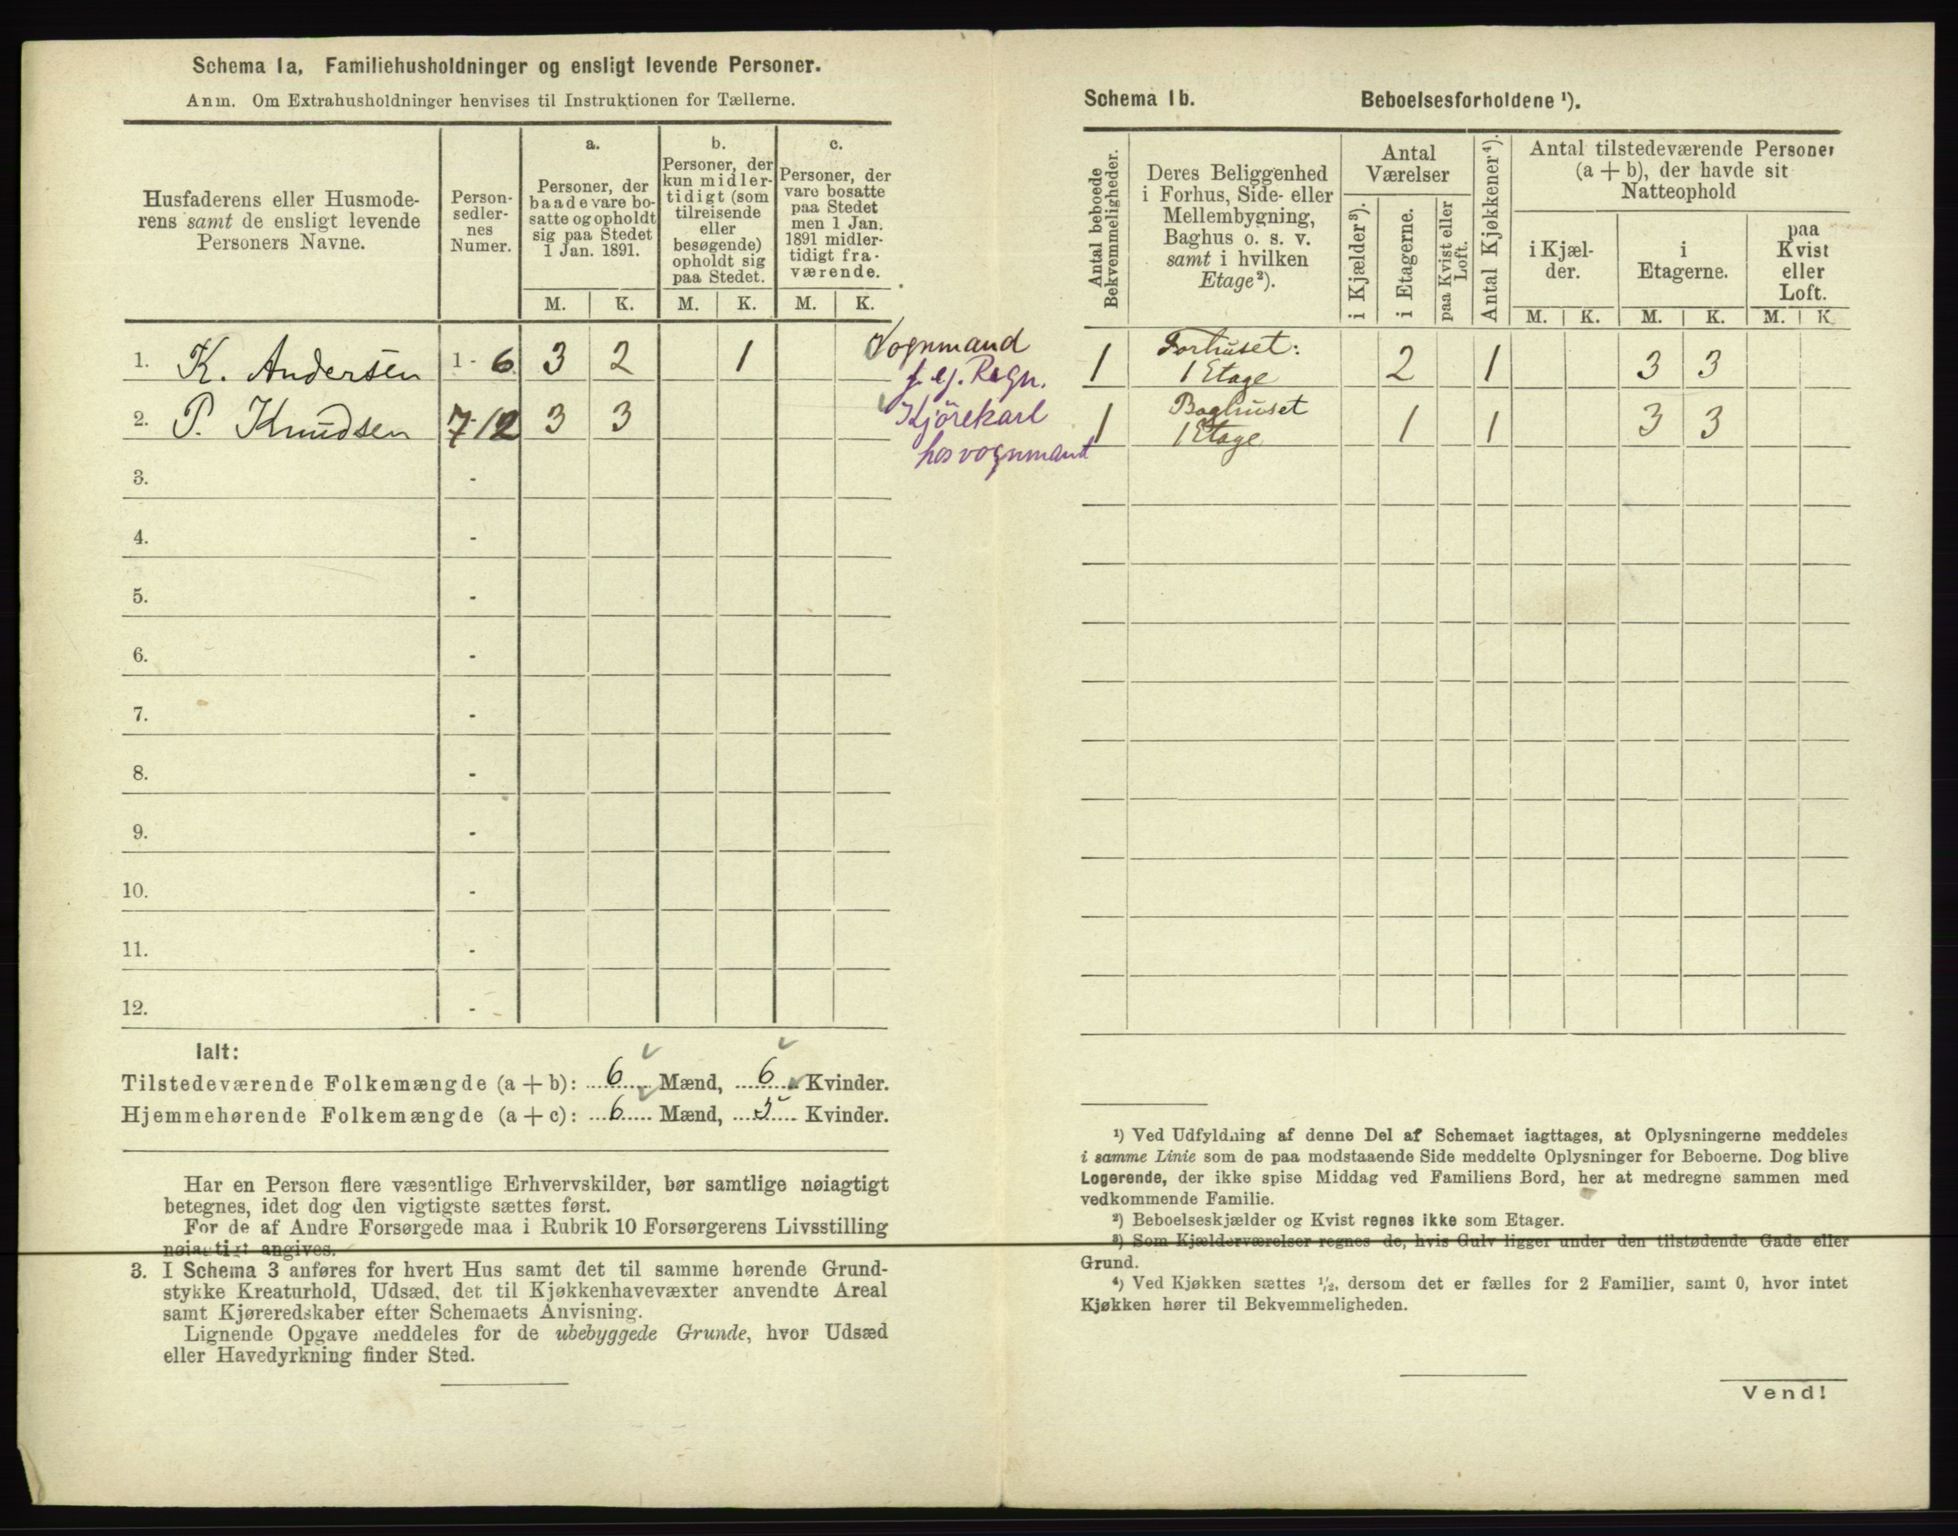 Schema 1a, Familiehusholdninger og ensligt levende Personer.
Anm. Om Extrahusholdninger henvises til Instruktionen for Tællerne.
Husfaderens eller Husmode-
rens samt de ensligt levende
Personers Navne.
Person-
sedler-
nes
Numer.
a.
Personer, der
baade vare bo-
satte og opholdt
sig paa Stedet
1 Jan. 1891.
b.
Personer, der
kun midler-
tidigt (som
tilreisende
eller
besøgende)
opholdt sig
paa Stedet.
c.
Personer, der
vare bosatte
paa Stedet
men 1 Jan.
1891 midler-
tidigt fra-
værende.
M. K. M. K. M. K.
1. K. Andersen 1 - 6 3 2 1
Vognmand
f. eg. Regn.
2. P. Knudsen 7-12 3 3
Kjörekarl
hos vognmand
3. -
4. -
5. -
6. -
7. -
8. -
9. -
10. -
11. -
12. -
Ialt:
Tilstedeværende Folkemængde (a + b): 6 Mænd, 6 Kvinder.
Hjemmehørende Folkemængde (a + c): 6 Mænd, 5 Kvinder.
Har en Person flere væsentlige Erhvervskilder, bør samtlige nøiagtigt
betegnes, idet dog den vigtigste sættes først.
For de af Andre Forsørgede maa i Rubrik 10 Forsørgerens Livsstilling
nøiagtigt angives.
3. I Schema 3 anføres for hvert Hus samt det til samme hørende Grund-
stykke Kreaturhold, Udsæd, det til Kjøkkenhavevæxter anvendte Areal
samt Kjøreredskaber efter Schemaets Anvisning.
Lignende Opgave meddeles for de ubebyggede Grunde, hvor Udsæd
eller Havedyrkning finder Sted.
Schema 1b. Beboelsesforholdene ¹).
Antal beboede
Bekvemmeligheder.
Deres Beliggenhed
i Forhus, Side- eller
Mellembygning,
Baghus o. s. v.
samt i hvilken
Etage²).
Antal
Værelser
i Kjælder³).
i Etagerne.
paa Kvist eller
Loft.
Antal Kjøkkener⁴).
Antal tilstedeværende Personer
(a + b), der havde sit
Natteophold
i Kjæl-
der.
i
Etagerne.
paa
Kvist
eller
Loft.
M. K. M. K. M. K.
1 Forhuset:
1 Etage 2 1 3 3
1 Baghuset
1 Etage 1 1 3 3
¹) Ved Udfyldning af denne Del af Schemaet iagttages, at Oplysningerne meddeles
i samme Linie som de paa modstaaende Side meddelte Oplysninger for Beboerne. Dog blive
Logerende, der ikke spise Middag ved Familiens Bord, her at medregne sammen med
vedkommende Familie.
²) Beboelseskjælder og Kvist regnes ikke som Etager.
³) Som Kjælderværelser regnes de, hvis Gulv ligger under den tilstødende Gade eller
Grund.
⁴) Ved Kjøkken sættes ¹/₂, dersom det er fælles for 2 Familier, samt 0, hvor intet
Kjøkken hører til Bekvemmeligheden.
Vend!